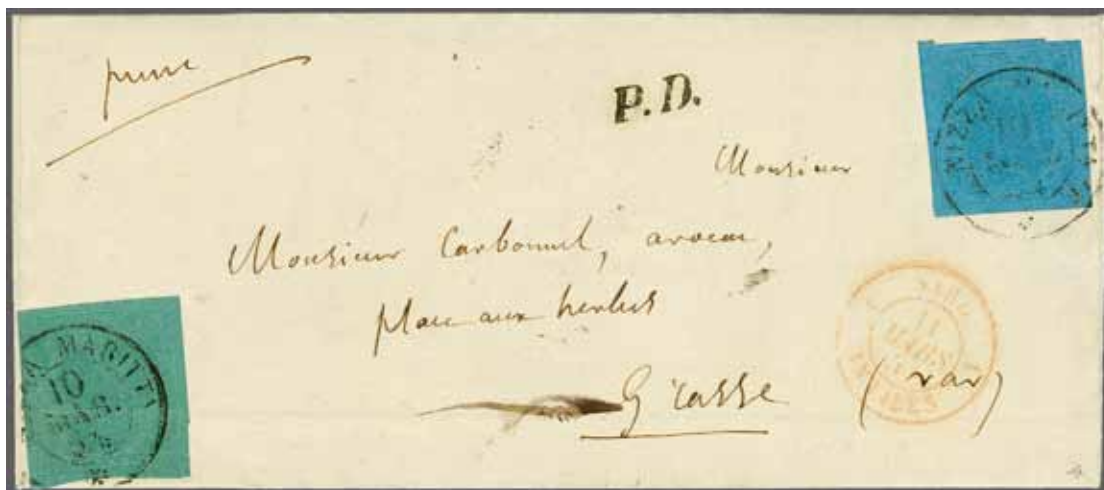 P.D.
Monsieur
Monsieur Carbonnel, avocat,
place aux herbes
Grasse (var)
NIZZA
A MARITT
10
MAR.
11
MARS